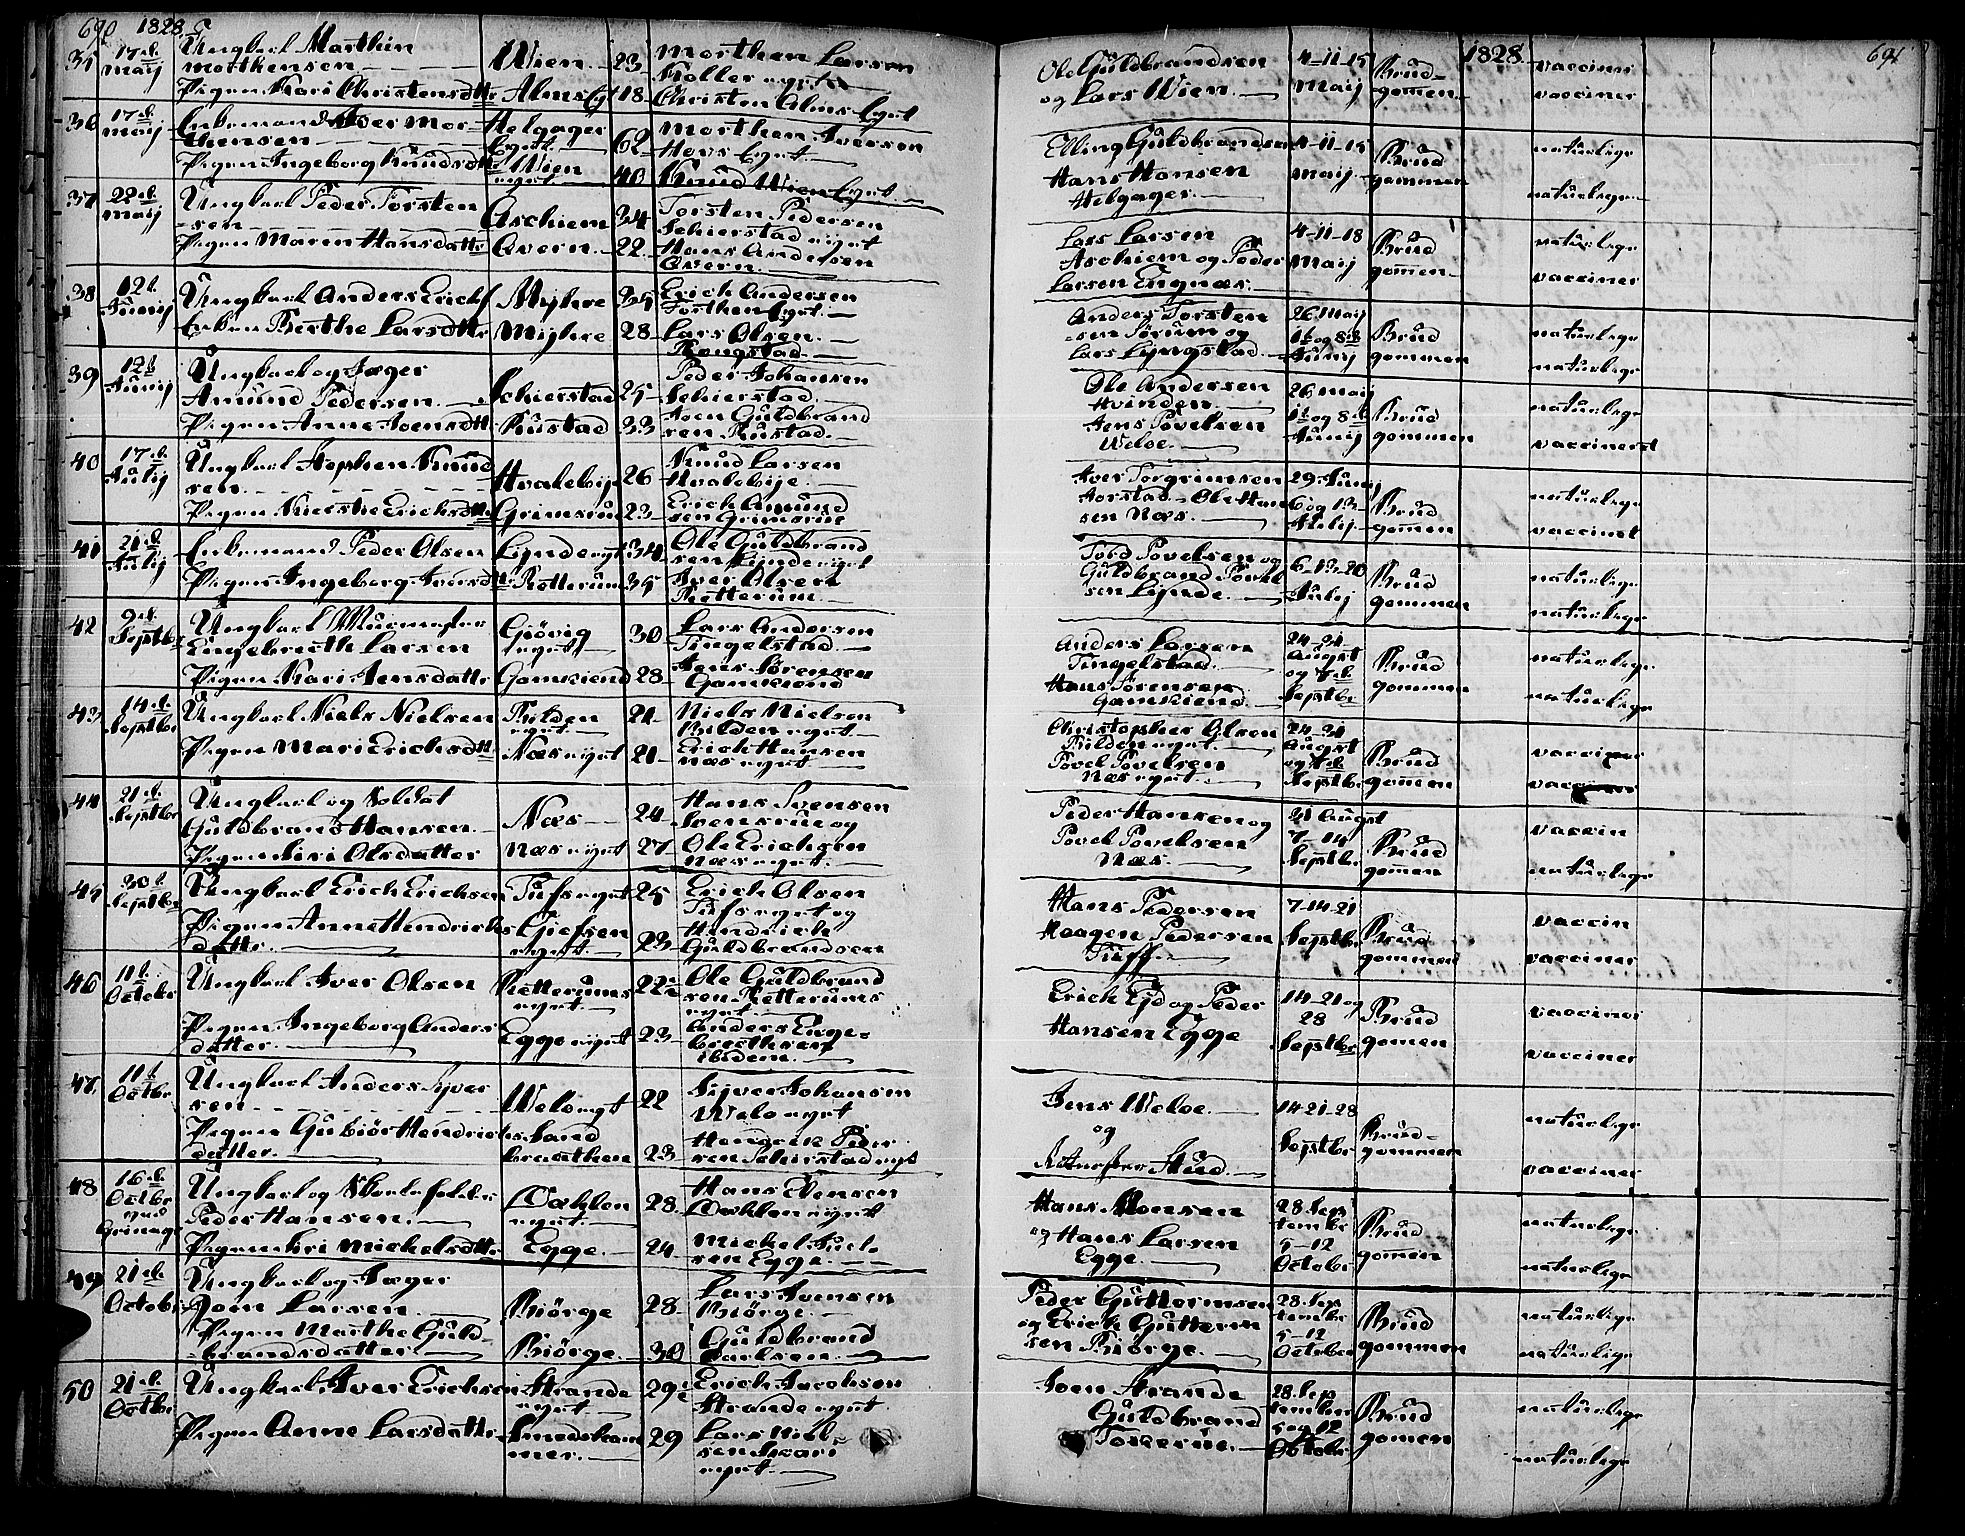 690 1828
35 17de Maij Ungkarl Marthin Morthensen Wien 23 Morthen Larsen Koller
Pigen Kari Christensdttr Alms Eyet 18 Christen Alms Eyet
36 17de Maij Enkemand Iver Morthensen Helgager Eyet 62 Morthen Iversen Hovs Eyet
Pigen Ingeborg Knudsdttr Wien eyet 40 Knud Wien Eyet
37 22de Maij Ungkarl Peder Torstensen Aschiem 34 Torsten Pedersen Schierstad eyet
Pigen Maren Hansdattr Qvern 22 Hans Andersen Qvern
38 12t Junij Ungkarl Anders Erichs Myhre 35 Erich Andersen Eyet
Enken Berthe Larsdttr Myhre 28 Lars Olsen Rongstad
39 12t Junij Ungkarl og Jæger Amund Pedersen Schierstad 25 Peder Johansen Schierstad
Pigen Anne Joensdttr Rustad 33 Joen Guldbrandsen Rustad
40 17de Julij Ungkarl Stephen Knudsen Hvalebye 26 Knud Larsen Hvalebye
Pigen Kierstie Erichsdttr Grimsrud 23 Erich Amundsen Grimsrud
41 21de Julij Enkemand Peder Olsen Lynde eyet 34 Ole Guldbrandsen Lynde eyet
Pigen Ingeborg Iversdttr Rotterum 35 Iver Olsen Rotterum
42 9de Septbr Ungkarl Engebreth Larsen Giövig eyet 30 Lars Andersen Tingelstad
Pigen Kari Jensdattr Gamkiend 28 Jens Sörensen Gamkiend
43 14de Septbr Ungkarl Niels Nielsen Bilden eyet 21 Niels Nielsen Bilden eyet
Pigen Mari Erichsdttr Næs eyet 21 Erich Hansen Næs eyet
44 21de Septbr Ungkarl og Soldat Guldbrand Hansen Næs 24 Hans Svensen Svensrud og
Pigen Siri Olsdatter Næs eyet 27 Ole Erichsen Næs eyet
45 30t Septbr Ungkarl Erich Erichsen Tufs eyet 25 Erich Olsen Tufs eyet og
Pigen Anne Hendrichsdattr eyet 23 Hendrich Guldbrandsen
46 11t Octobr Ungkarl Iver Olsen Rotterums eyet 22 1/2 Ole Guldbrandsen Rotterums eyet
Pigen Ingeborg Andersdatter Egge eyet 23 Anders Engebrethsen ibidem
47 11t Octbr Ungkarl Anders Syversen Welo eyet 22 Syver Johansen Welo eyet
Pigen Gubiör Hendrichsdatter Sandbraathen 23 Hendrich Pedersen Schierstad eyet
48 16de Octbr ved Grinager Ungkarl og Peder Hansen Dæhlen eyet 28 Hans Evensen Dæhlen eyet
Pigen Siri Michelsdttr Egge 24 Michel Egge
49 21de Octobr Ungkarl og Jæger Joen Larsen Biörge 28 Lars Svensen Biörge
Pigen Marthe Guldbrandsdatter Biörge 30 Guldbrand Carlsen
50 21de Octbr Ungkarl Iver Erichsen Strande eyet 29 1/2 Erich Jacobsen Strande eyet
Pigen Anne Larsdattr Smedshammer 29 Lars eyet
1828 691
Ole Guldbrandsen og Lars Wien 4-11-15 Maij Brudgommen vacciner vacciner
Elling Guldbrandsen Hans Hansen Helgager 4-11-15 Maij Brudgommen naturlige naturlige
Lars Larsen Aschiem og Peder Larsen Engnæs 4-11-18 Maij Brudgommen naturlige vacciner
Anders Torstensen Sörum og Lars Lyngstad 26 Maij 1t og 8de Junij Brudgommen naturlige naturlige
Ole Andersen Hvinden Jens Povelsen Weloe 26 Maij 1t og 8de Junij Brudgommen naturlige vaccineret
Iver Torgrimsen Ole Hansen Næs 29 Junij 6 og 13 Julij Brudgommen naturlige vaccinet
Tord Povelsen og Guldbrand Povelsen Lynde 6-13-20 Julij Brudgommen naturlige naturlige
Anders Larsen Tingelstad Hans Sörensen Gamkiend 24-31 August og 7de Septbr Brudgommen naturlige naturlige
Christopher Olsen Bilden eyet Povel Povelsen Næs eyet 24-31 August og 7de Septbr Brudgomen vacciner vacciner
Peder Hansen og Povel Povelsen Næs 31 August 7-14 Septbr Brudgomen vaccin naturlige
Hans Pedersen Haagen Pedersen Tuff 7-14-21 Septbr Brudgommen vaccin vacciner
Erich Eid og Peder Hansen Egge 14-21 og 28 Septbr Brudgomen vacciner vacciner
Jens Weloe og Stud 14-21-28 Septbr Brudgommen naturlige vacciner
Hans Monsen og Hans Larsen Egge 28 September 5-12 October Brudgomen naturlige naturlige
Peder Guttormsen og Erich Guttormsen Biörge 28 September 5-12 October Brudgommen naturlige naturlige
Joen Strande Guldbrand 28 September 5 og 12 Octobr Brudgomen naturlige naturlige